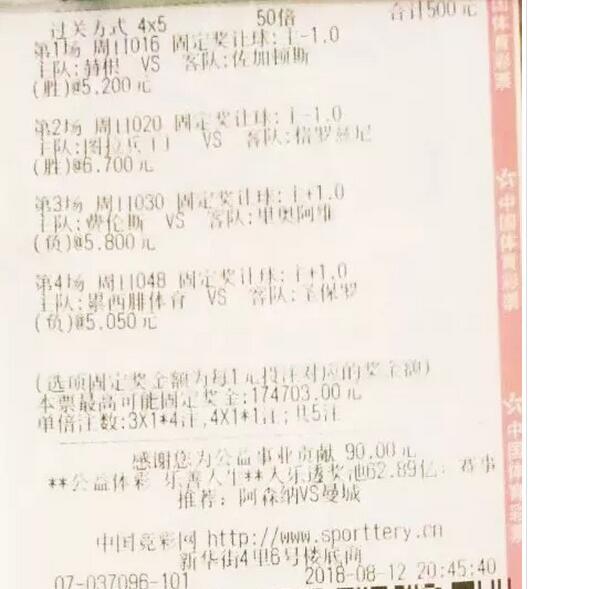 过关方式 4x5 50倍 合计500元
第1场 周日016 固定奖让球:主-1.0
主队:赫根 VS 客队:佐加顿斯
(胜)@5.200元
第2场 周日020 固定奖让球:主-1.0
主队:图拉兵工 VS 客队:格罗兹尼
(胜)@6.700元
第3场 周日030 固定奖让球:主+1.0
主队:费伦斯 VS 客队:里奥阿维
(负)@5.800元
第4场 周日048 固定奖让球:主+1.0
主队:累西腓体育 VS 客队:圣保罗
(负)@5.050元
(选项固定奖金额为每1元投注对应的奖金额)
本票最高可能固定奖金:174703.00元
单倍注数:3X1*4注,4X1*1注;共5注
感谢您为公益事业贡献 90.00元
**公益体彩 乐善人生**大乐透奖池62.89亿; 赛事
推荐: 阿森纳VS曼城
中国竞彩网 http://www.sporttery.cn
新华街4里6号楼底商
07-037096-101 2018-08-12 20:45:40
国体育彩票
中国体育彩票
中国体育彩票